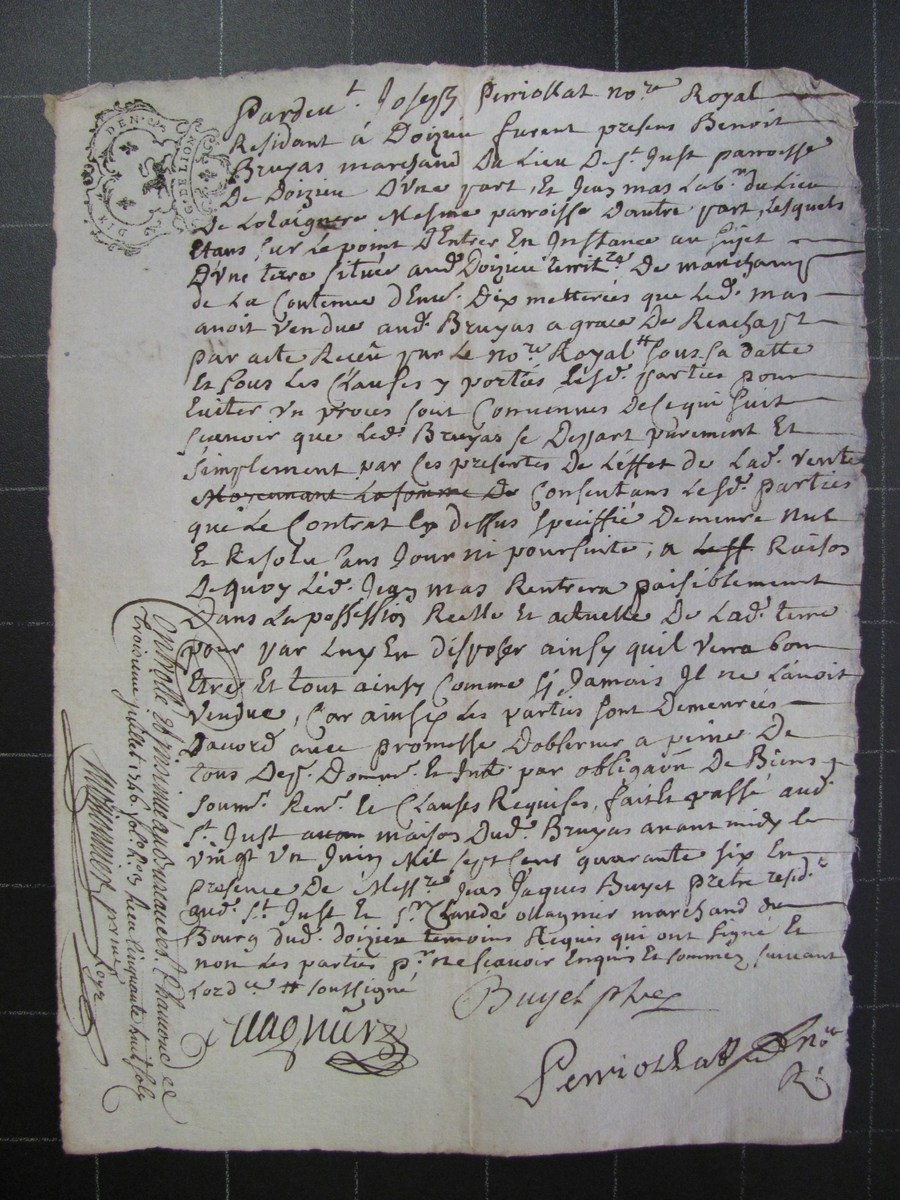 GEN. DE LION
DEN.
Pardevt. Joseph Perriollat nore. Royal
Residant à Doizieu furent presens Benoit
Bruyas marchand du lieu de st. Just parroisse
de Doizieu d'une part, et Jean mas labr. du lieu
de mesme parroisse d'autre part, lesquels
etans sur le point d'entrer en instance au sujet
d'une terre située aud. Doizieu territre. de
de la contenue d'envn. dix metterées que led. mas
avoit vendue aud. Bruyas a grace de Reachapt
par acte Receu par le nore. Royal # sous sa datte
et sous les clauses y portées lesd. parties pour
eviter un proces sont convenues de ce qui suit
scavoir que led. Bruyas se depart purement et
simplement par ces presentes de l'effet de lad. vente
moyennant la somme de consentans lesd. parties
que le contrat cy dessus speciffié demeure nul
et resolu sans jour ni poursuite, a leff Raison
de quoy led. Jean mas Rentrera paisiblement
dans la possession Reelle et actuelle de lad. terre
pour par luy en disposer ainsy quil verra bon
etre et tout ainsy comme sy jamais il ne l'avoit
vendue, car ainsy les parties sont demeurées
d'acord avec promesse d'observer a peine de
tous dep. domm. et int. par obligaõn de Biens
soumn. Renn. et clauses Requises, fait et passé aud.
st. Just maison dud. Bruyas avant midy le
vingt un Juin mil sept cens quarante six en
presence de Messre. Jean Jaques Buyet pretre resid.
aud. st. Just et sr. Claude ollagnier marchand du
Bourg dud. doizieu temoins Requis qui ont signé et
non les parties pr. ne scavoir enquis et sommez suivant
l'ordce. # soussigné
Buyet ptre
ollagnier
Perriollat nore
R.
Controllé et insinué au bureau de st. Chamond ce
troisieme juillet 1746 Reçu cinquante huit sols